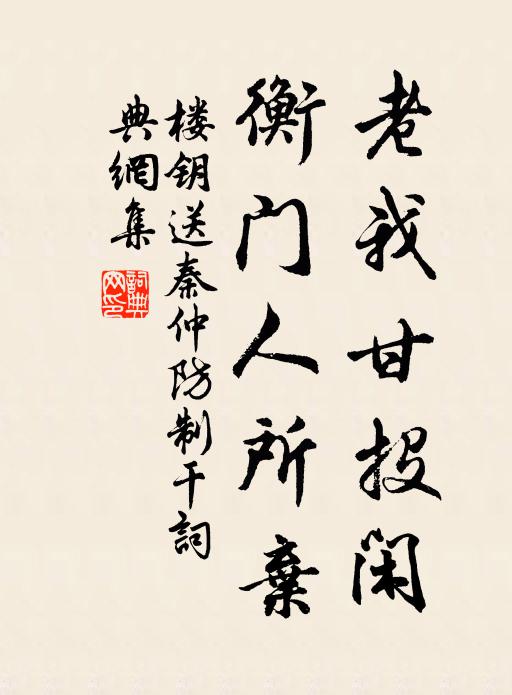 老我甘投闲
衡门人所棄
楼钥送秦仲防制干詞
典網集
詞典網印